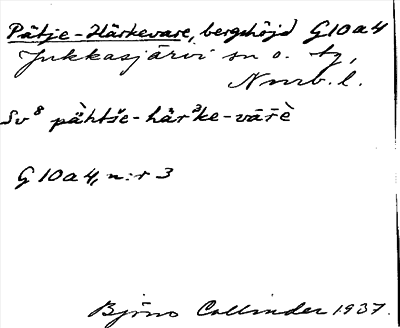 Pätje-Härkevare, bergshöjd G10a4
Jukkasjärvi sn o. tg,
Nnrb. l.
Sv⁸ pàhtše-hàr³ke-vārè
G10a4, n:r 3
Björn Collinder 1937.